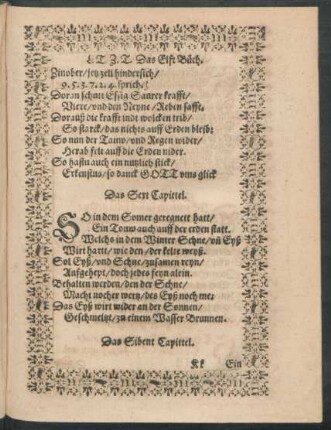 L T Z. T. Das Eist Bůch.
Zinober/sey zell hindersich/
9. 5. 3. 7. 2. 4. sprich/
Doran schutt Essig Saurer krafft/
Viere/vnd den Neyne/Reben safft/
Dorauß die krafft in dt wolcken trib/
So starck/das nichts auff Erden bleib:
So nun der Tauw/vnd Regen wider/
Herab felt auff die Erden nider.
So hastu auch ein nutzlich stick/
Erkenstus/so danck GOTT vms glick
Das Sext Capittel.
SO in dem Somer geregnett hatt/
Ein Touw auch auff der erden statt.
Welchs in dem Winter Schne/vñ Eyß
Wirt hartt/wie den/der kelte weyß.
Sol Eyß/vnd Schne/zusamen reyn/
Auffgehept/doch jedes seyn alein.
Behalten werden/den der Schne/
Macht nocher wertz/des Eyß noch me:
Das Eyß wirt wider an der Sonnen/
Geschmeltzt/zu einem Wasser Brunnen.
Das Sibent Capittel.
Kk Ein